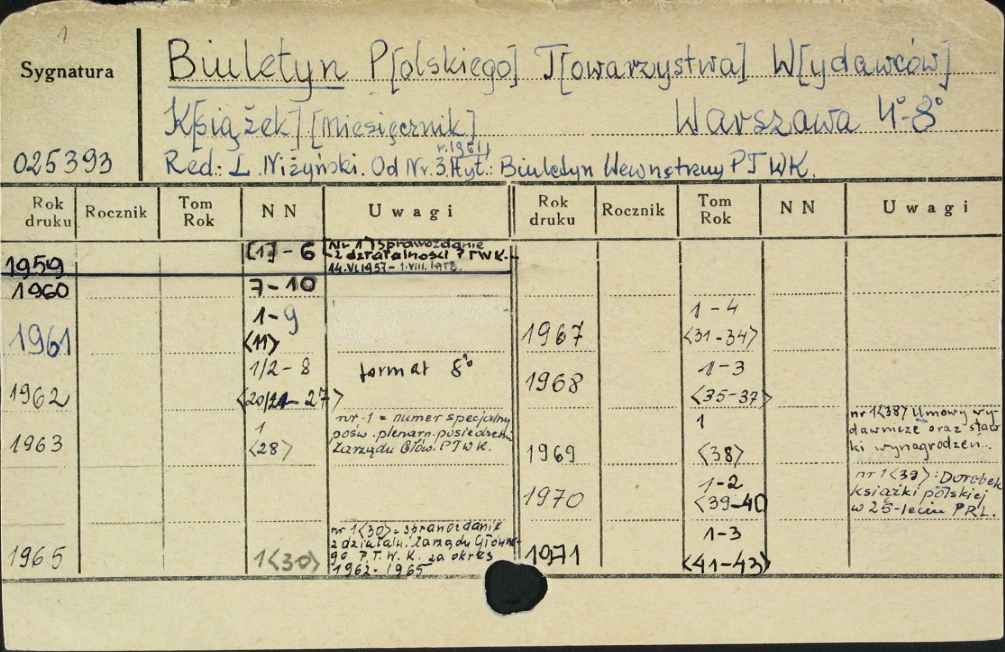 1
Sygnatura
Biuletyn P[olskiego] T[owarzystwa] W[ydawców]
K[siążek] [miesięcznik] Warszawa 4°-8°
r. 1961
025393
Red: L. Niżyński. Od Nr. 3 tyt.: Biuletyn Wewnętrzny PTWK.
Rok druku Rocznik Tom Rok NN Uwagi Rok druku Rocznik Tom Rok NN Uwagi
1959 [1]-6 [Nr 1] Sprawozdanie
z działalności PTWK.
14.VI.1957-1.VIII.1958.
1960 7-10
1961 1-9
<11>
1962 1/2-8 format 8°
<20/21-27>
1963 1 nr 1 = numer specjalny
<28> pośw. plenarn. posiedzeń
Zarządu Głów. PTWK.
1965 1<30> nr 1<30> = sprawozdanie
z działaln. Zarządu Główne-
go P.T.W.K. za okres
1962-1965
1967 1-4
<31-34>
1968 1-3
<35-37>
1969 1 nr 1<38> Umowy wy
<38> dawnicze oraz staw
ki wynagrodzeń.
1970 1-2 nr 1<39>: Dorobek
<39-40 książki polskiej
w 25-leciu PRL.
1971 1-3
<41-43>